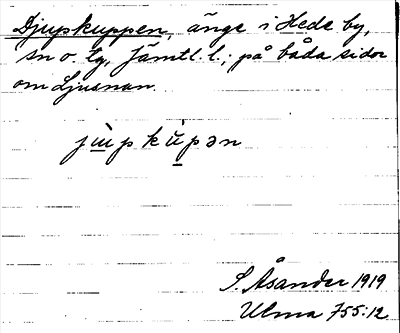 Djupkuppen, änge i Hede by,
sn o. tg, Jämtl. l.; på båda sidor
om Ljusnan.
jùpkùpən
S. Åsander 1919
Ulma 755:12